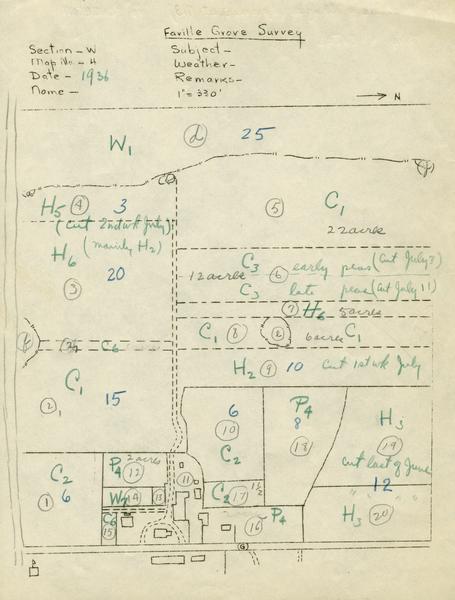 Faville Grove Survey
Section - W
Map No. - H
Date - 1936
Name -
Subject -
Weather -
Remarks -
1" = 330'
N
W1 d 25
H5 4 3
(cut 2nd wk July)
H6 (mainly H2)
20
3
5 C1
22 acres
12 acres C3 6 early peas (cut July 3)
C3 late peas (cut July 11)
7 H6 5 acres
C1 8 e 6 acres C1
C6
H2 9 10 cut 1st wk July
C1
2 15
6
10
C2
P4
8
18
H3
19
cut last of June
12
H3 20
C2
1 6
P4 2 acres
12
11
W7 14 13
C2 17 1 1/2
C6
15
16 P4
G